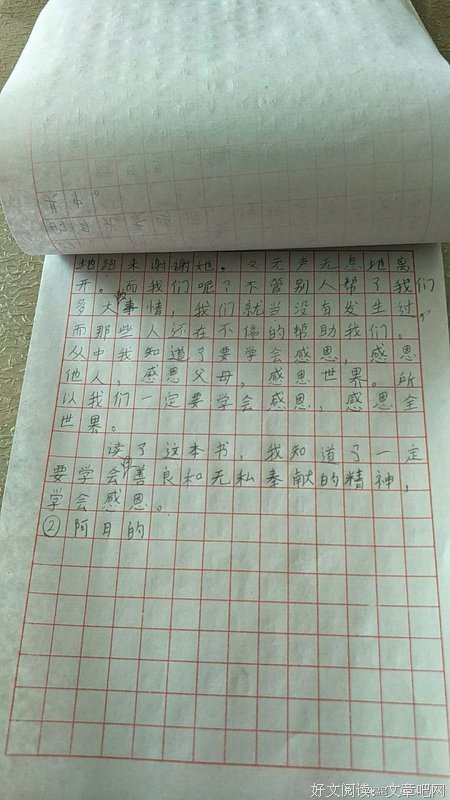 地跑来谢谢她。又无声无息地离
开。而我们呢？不管别人帮了我们
多大事情，我们就当没有发生过。
而那些人还在不停的帮助我们。
从中我知道了要学会感恩，感恩
他人，感恩父母，感恩世界。所
以我们一定要学会感恩，感恩全
世界。
读了这本书，我知道了一定
要学会善良和无私奉献的精神，
学会感恩。
②阿目的
好文阅读 文章吧网